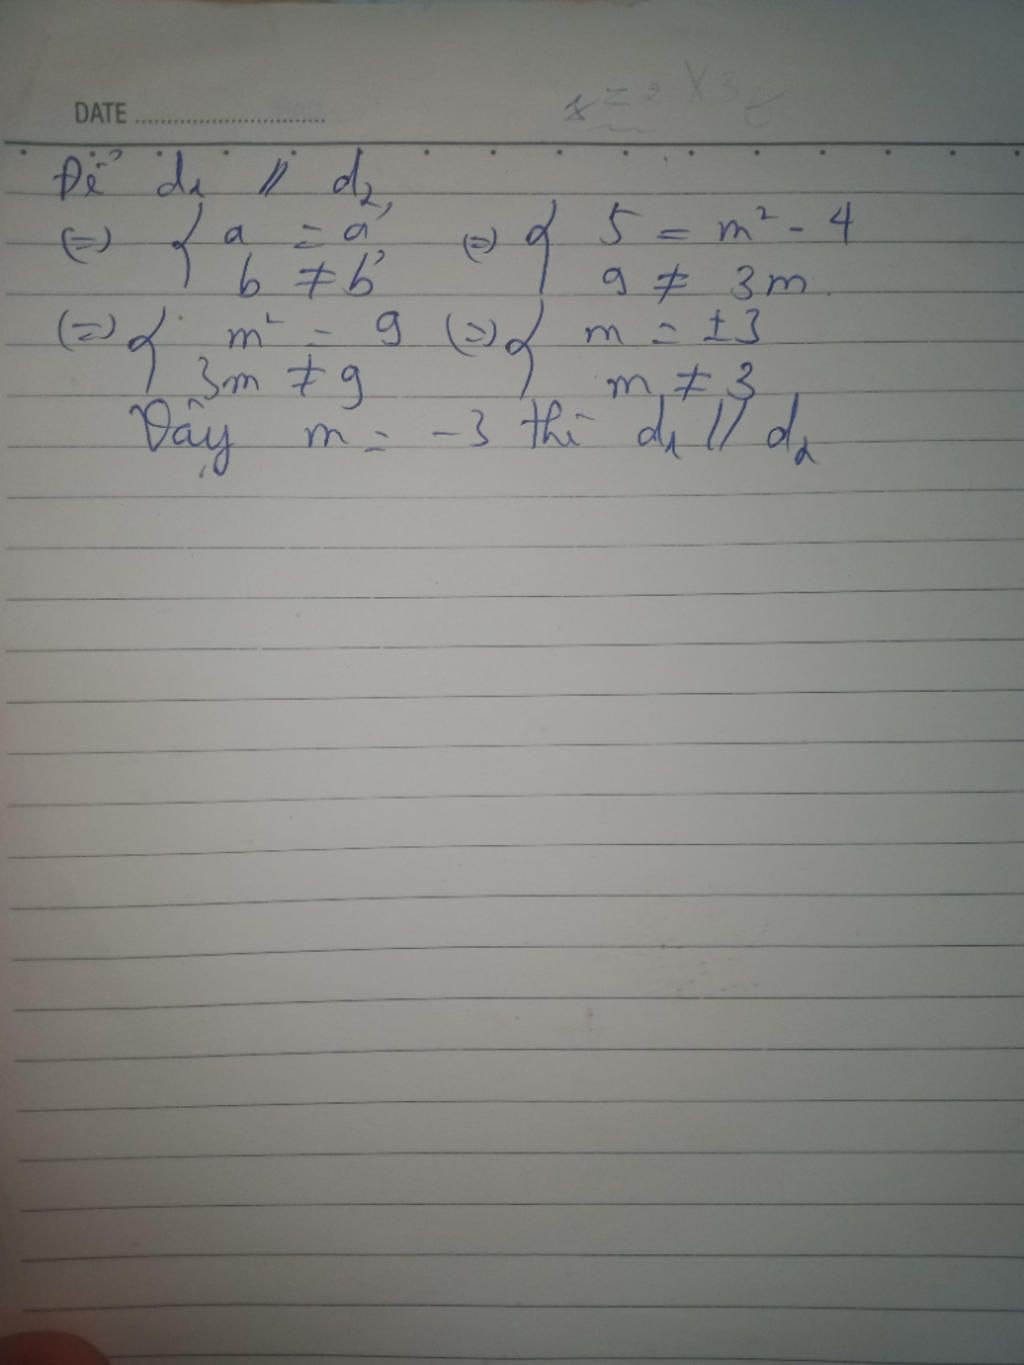 DATE
Để d₁ // d₂
(=) { a = a' (=) { 5 = m² - 4
b ≠ b' 9 ≠ 3m
(=) { m² = 9 (=) { m = ±3
3m ≠ 9 m ≠ 3
Vậy m = -3 thì d₁ // d₂